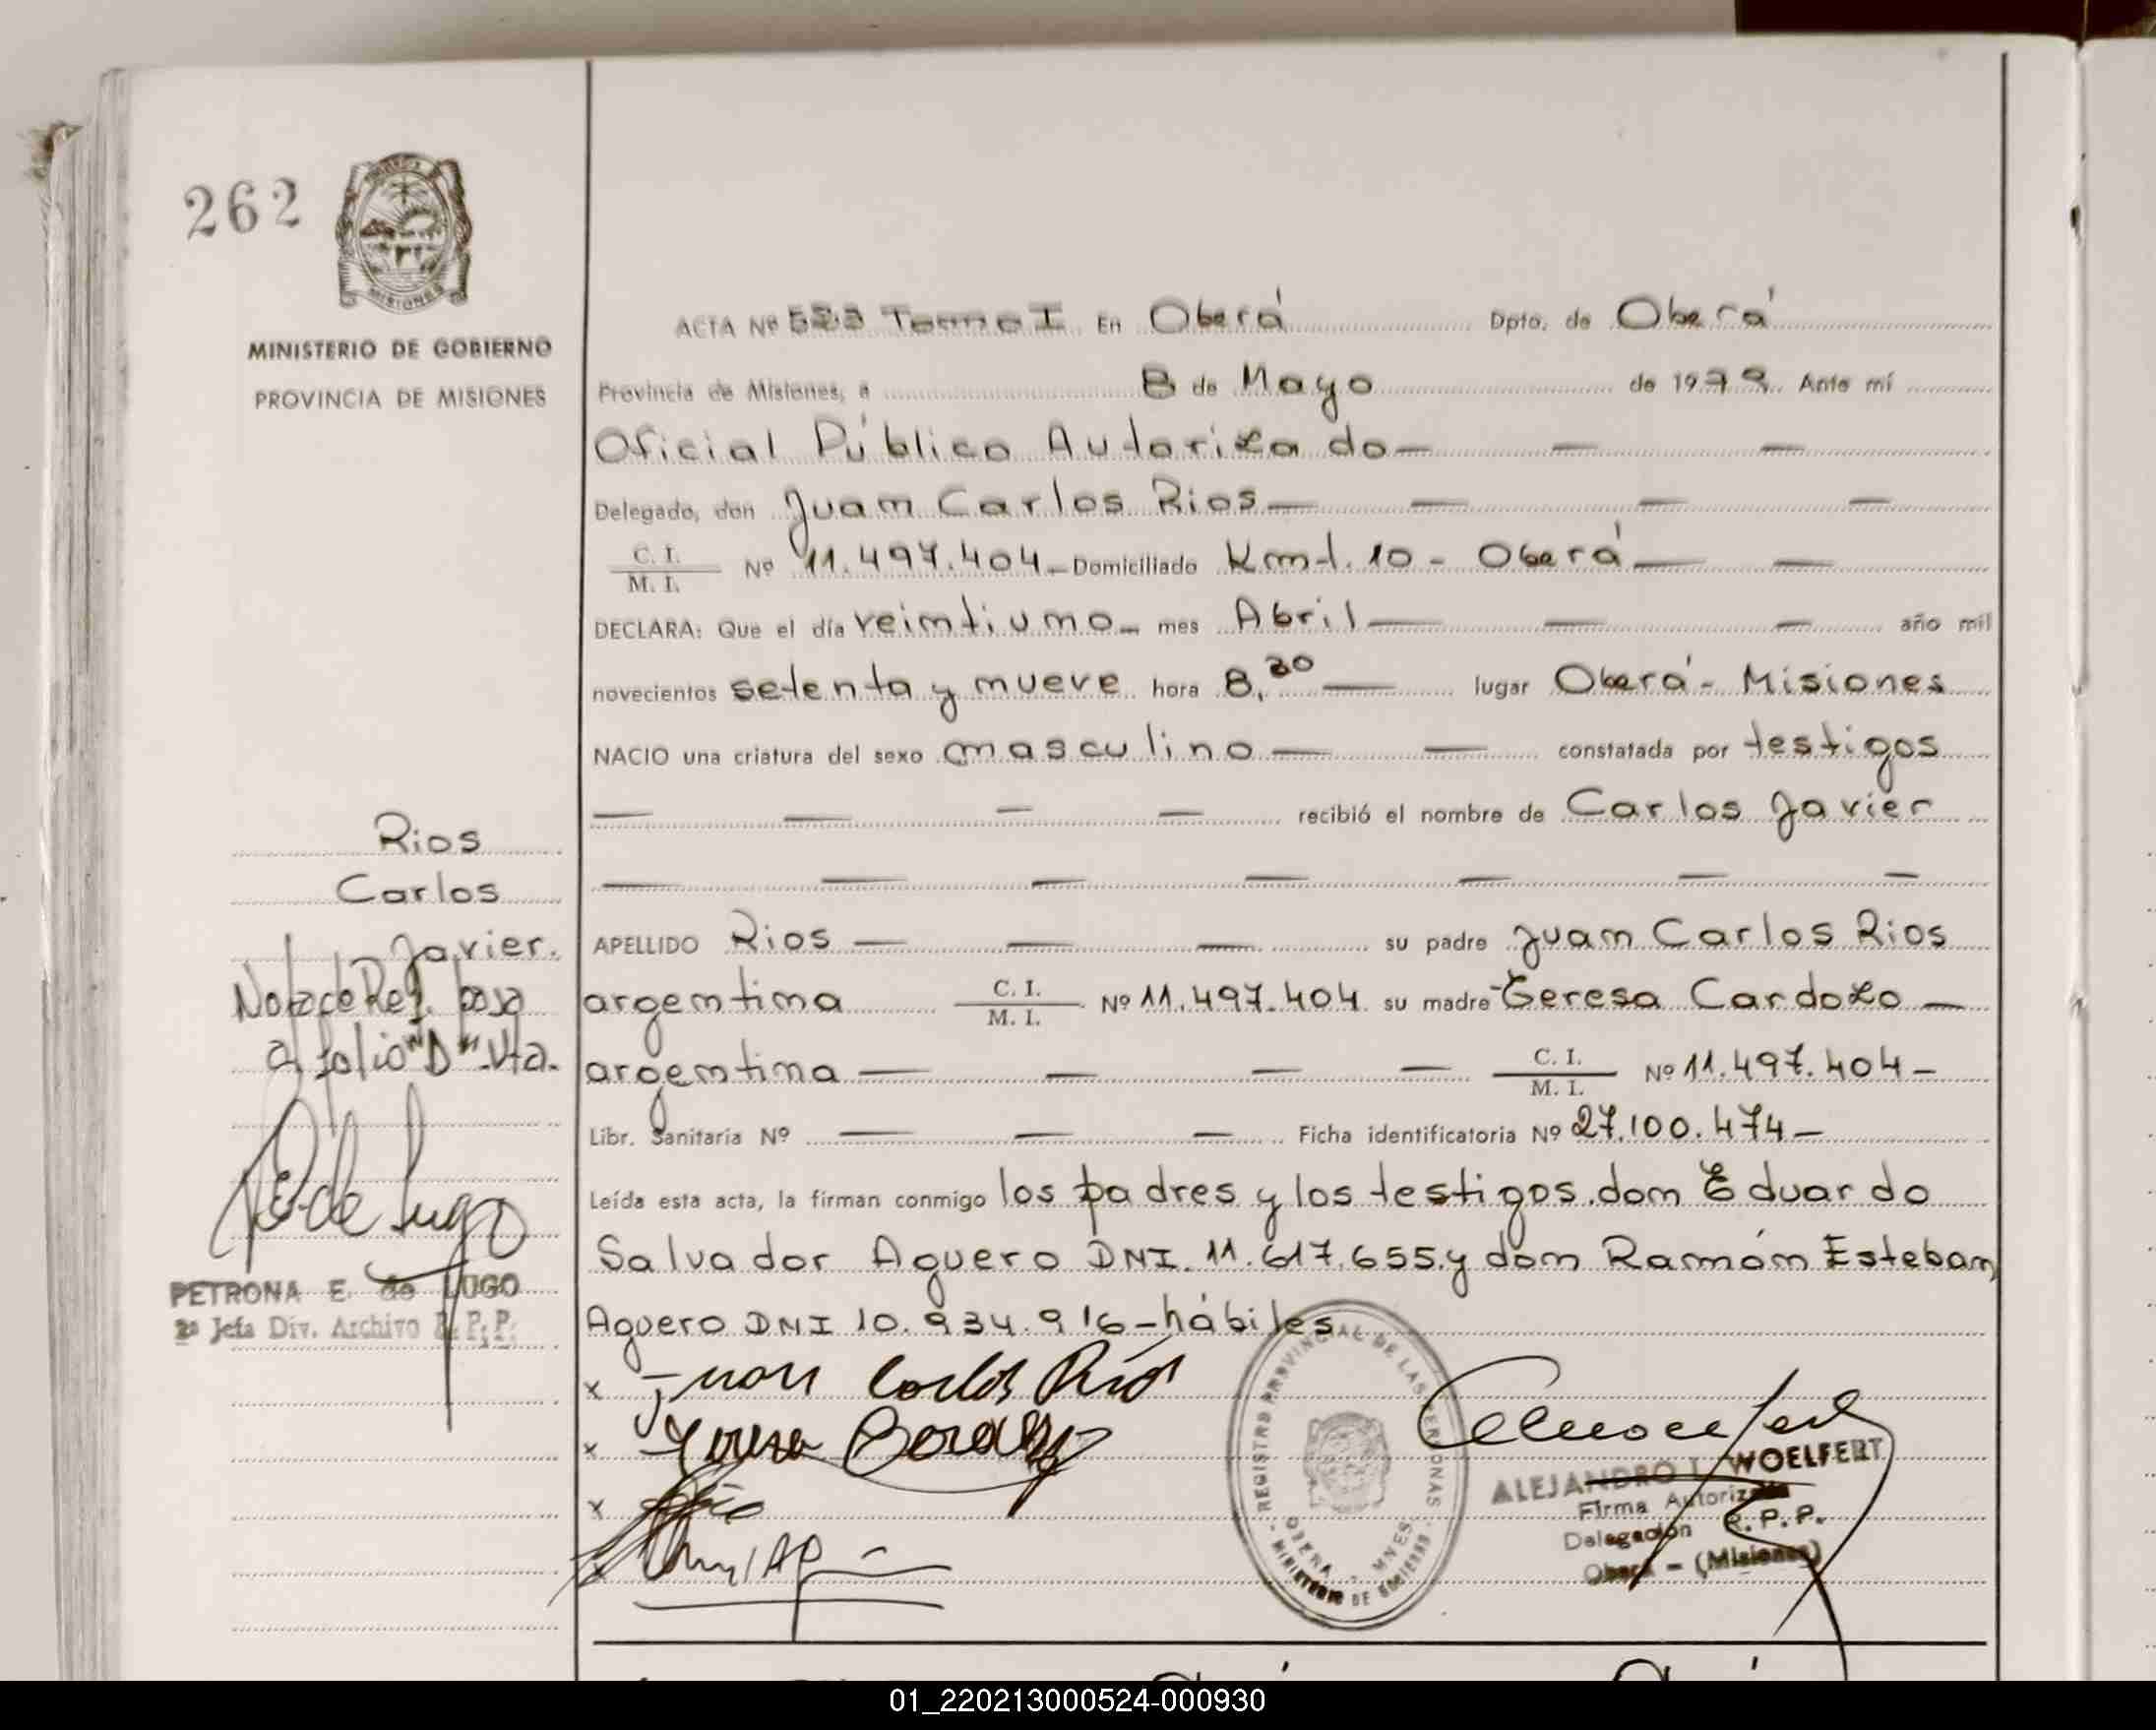 262
MISIONES
MINISTERIO DE GOBIERNO
PROVINCIA DE MISIONES
ACTA Nº 523 Tomo I En Oberá Dpto. de Oberá
Provincia de Misiones, a 8 de Mayo de 1979 Ante mí
Oficial Público Autorizado
Delegado, don Juan Carlos Rios
C. I.
M. I. Nº 11.497.404 Domiciliado Kmt. 10 - Oberá
DECLARA: Que el día veintiuno mes Abril año mil
novecientos setenta y nueve hora 8,30 lugar Oberá - Misiones
NACIO una criatura del sexo masculino constatada por testigos
recibió el nombre de Carlos Javier
APELLIDO Rios su padre Juan Carlos Rios
argentina C. I.
M. I. Nº 11.497.404 su madre Teresa Cardozo
argentina C. I.
M. I. Nº 11.497.404
Libr. Sanitaria Nº Ficha identificatoria Nº 27.100.474
Leída esta acta, la firman conmigo los padres y los testigos don Eduardo
Salvador Aguero DNI. 11.617.655 y don Ramón Esteban
Aguero DNI 10.934.916 - hábiles
x Juan Carlos Rios
x Teresa
x
x
Rios
Carlos
Javier.
Nota de Ref. pasa
a folio "D" Vta.
P E de Lugo
PETRONA E. de LUGO
2ª Jefa Div. Archivo R. P. P.
REGISTRO PROVINCIAL DE LAS PERSONAS
OBERA - MNES.
MINISTERIO DE GOBIERNO
ALEJANDRO I. WOELFERT
Firma Autorizada
Delegación R. P. P.
Oberá - (Misiones)
01_220213000524-000930